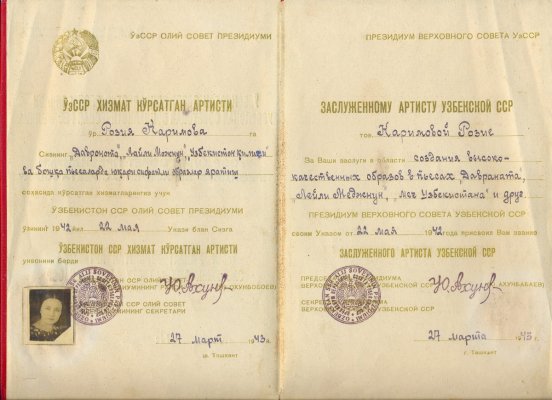 ЎзССР ОЛИЙ СОВЕТ ПРЕЗИДИУМИ
ЎзССР ХИЗМАТ КЎРСАТГАН АРТИСТИ
ўр. Розия Каримова га
Сизнинг „Даврон ота“, „Лайли Мажнун“, „Ўзбекистон қиличи“
ва бошқа пьесаларда юқори сифатли образлар яратиш
соҳасида кўрсатган хизматларингиз учун
ЎЗБЕКИСТОН ССР ОЛИЙ СОВЕТ ПРЕЗИДИУМИ
ўзининг 1942 йил 22 май Укази блан Сизга
ЎЗБЕКИСТОН ССР ХИЗМАТ КЎРСАТГАН АРТИСТИ
унвонини берди
ССР ОЛИЙ
(АХУНБОБОЕВ)
ССР ОЛИЙ СОВЕТ
СЕКРЕТАРИ
27 март 1943 й.
ш. Ташкент
ПРЕЗИДИУМ ВЕРХОВНОГО СОВЕТА УзССР
ЗАСЛУЖЕННОМУ АРТИСТУ УЗБЕКСКОЙ ССР
тов. Каримовой Розие
За Ваши заслуги в области создания высоко-
качественных образов в пьесах „Давраната“,
„Лейли Меджнун“, „Меч Узбекистана“ и друг.
ПРЕЗИДИУМ ВЕРХОВНОГО СОВЕТА УЗБЕКСКОЙ ССР
своим Указом от 22 мая 1942 года присвоил Вам звание
ЗАСЛУЖЕННОГО АРТИСТА УЗБЕКСКОЙ ССР
ПРЕЗИДИУМА
УЗБЕКСКОЙ ССР
(АХУНБАБАЕВ)
УЗБЕКСКОЙ ССР
27 марта 1943 г.
г. Ташкент